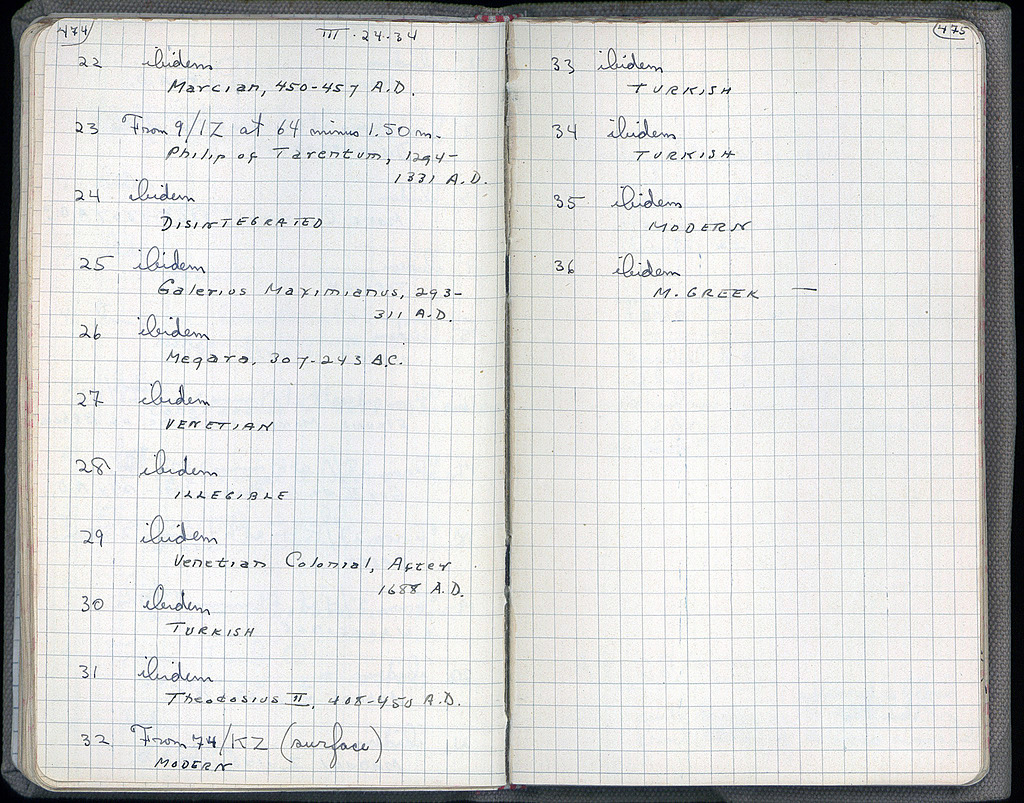 474
III · 24 · 34
22 ibidem
Marcian, 450-457 A.D.
23 From 9/IZ at 64 minus 1.50 m.
Philip of Tarentum, 1294-
1331 A.D.
24 ibidem
DISINTEGRATED
25 ibidem
Galerius Maximianus, 293-
311 A.D.
26 ibidem
Megara, 307-243 B.C.
27 ibidem
VENETIAN
28 ibidem
ILLEGIBLE
29 ibidem
Venetian Colonial, After
1688 A.D.
30 ibidem
TURKISH
31 ibidem
Theodosius II, 408-450 A.D.
32 From 74/KZ (surface)
MODERN
475
33 ibidem
TURKISH
34 ibidem
TURKISH
35 ibidem
MODERN
36 ibidem
M. GREEK —